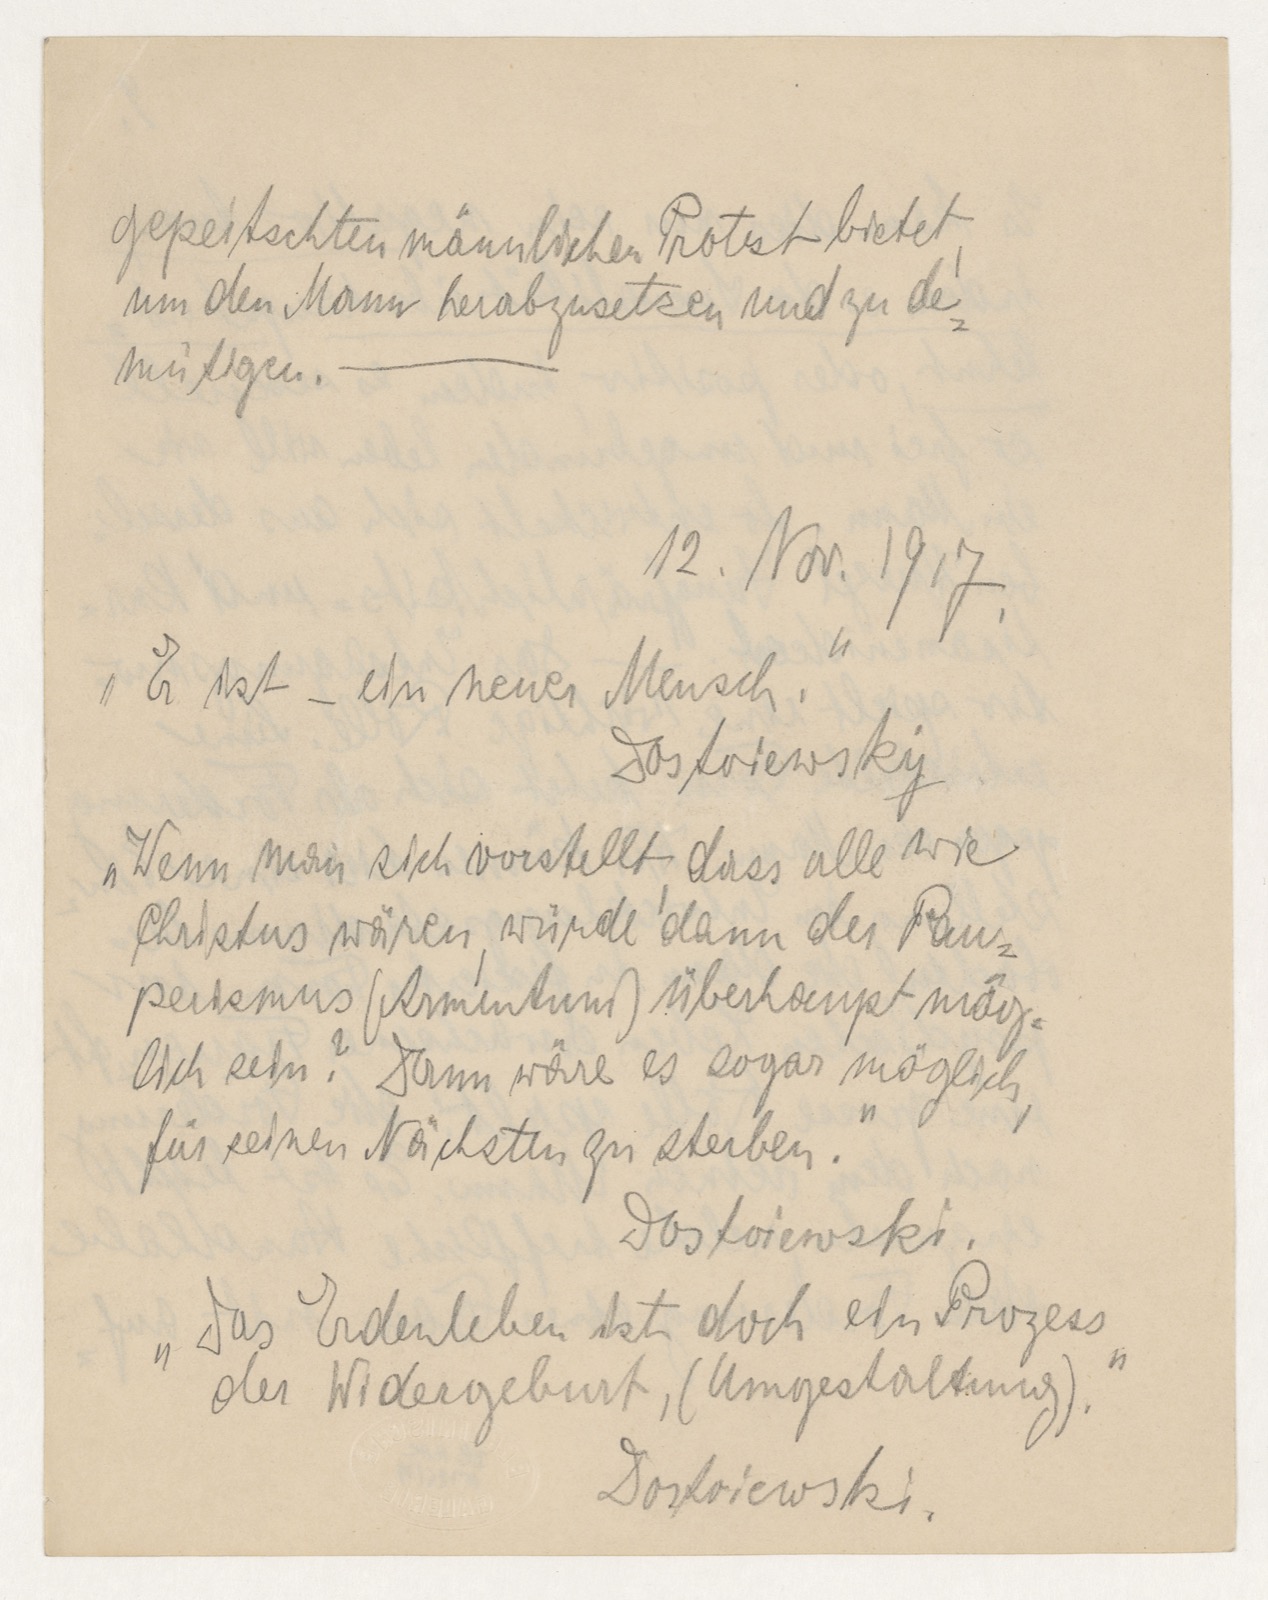 gepeitschten männlichen Protest bietet,
um den Mann herabzusetzen und zu de=
mütigen. —
12. Nov. 1917.
„Er ist – ein neuer Mensch."
Dostoiewskij
„Wenn man sich vorstellt, dass alle wie
Christus wären, würde dann der Pau=
perismus (Armentum) überhaupt mög=
lich sein? Dann wäre es sogar möglich,
für seinen Nächsten zu sterben."
Dostoiewski.
„Das Erdenleben ist doch ein Prozess
der Widergeburt, (Umgestaltung)."
Dostoiewski.